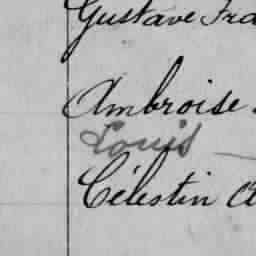 Gustave Fra
Ambroise
Louis
Célestin